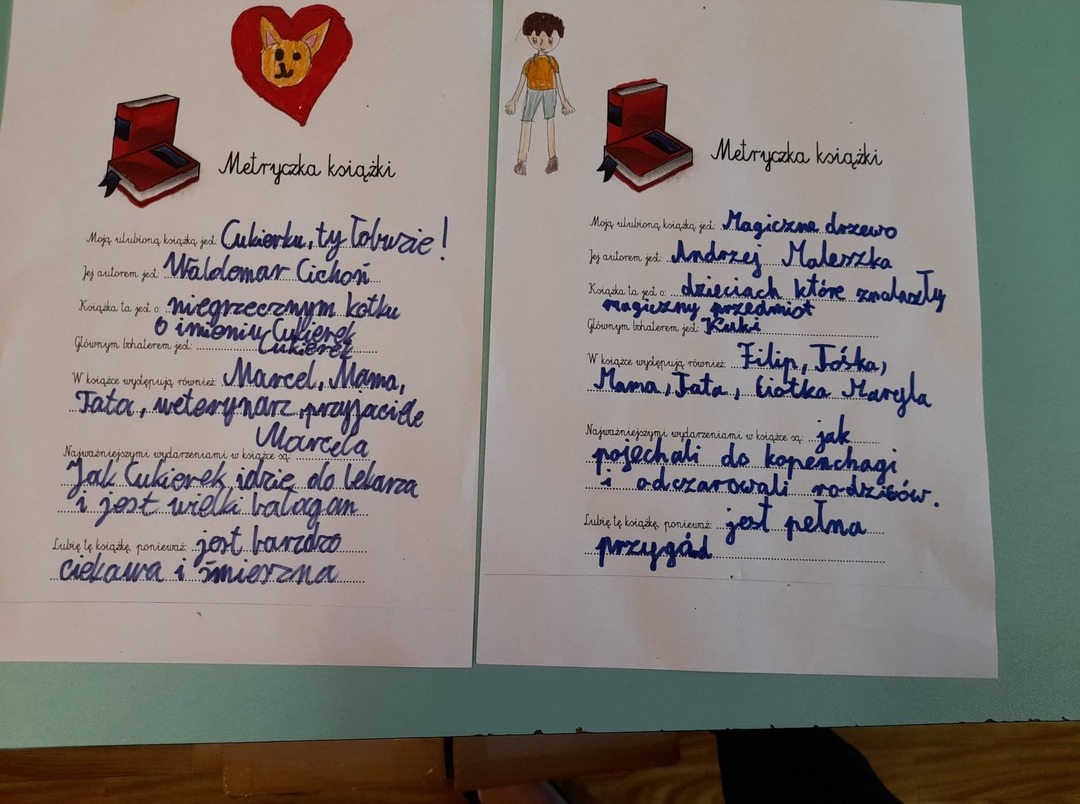 Metryczka książki
Moją ulubioną książką jest: Cukierku, ty łobuzie!
Jej autorem jest: Waldemar Cichoń
Książka ta jest o: niegrzecznym kotku
o imieniu Cukierek
Głównym bohaterem jest: Cukierek
W książce występują również: Marcel, Mama,
Tata, weterynarz, przyjaciele
Marcela
Najważniejszymi wydarzeniami w książce są:
Jak Cukierek idzie do lekarza
i jest wielki bałagan
Lubię tę książkę, ponieważ: jest bardzo
ciekawa i śmieszna
Metryczka książki
Moją ulubioną książką jest: Magiczne drzewo
Jej autorem jest: Andrzej Maleszka
Książka ta jest o: dzieciach które znalazły
magiczny przedmiot
Głównym bohaterem jest: Kuki
W książce występują również: Filip, Tośka,
Mama, Tata, Ciotka Maryla
Najważniejszymi wydarzeniami w książce są: jak
pojechali do kopenchagi
i odczarowali rodziców.
Lubię tę książkę, ponieważ: jest pełna
przygód